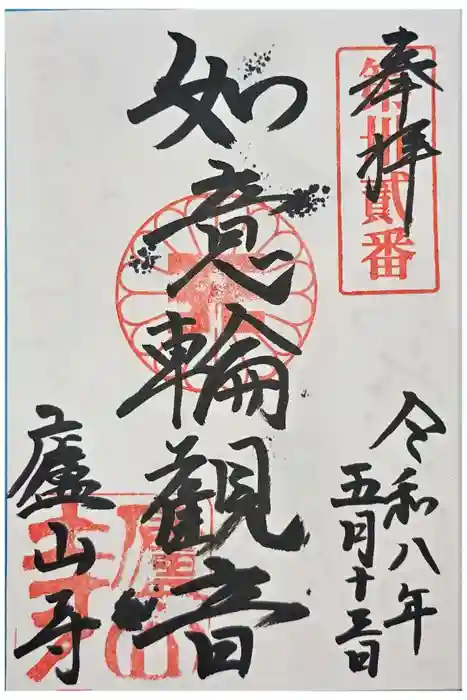 奉拝
第卅貳番
如意輪観音
令和八年
五月十三日
廬山寺
廬山寺